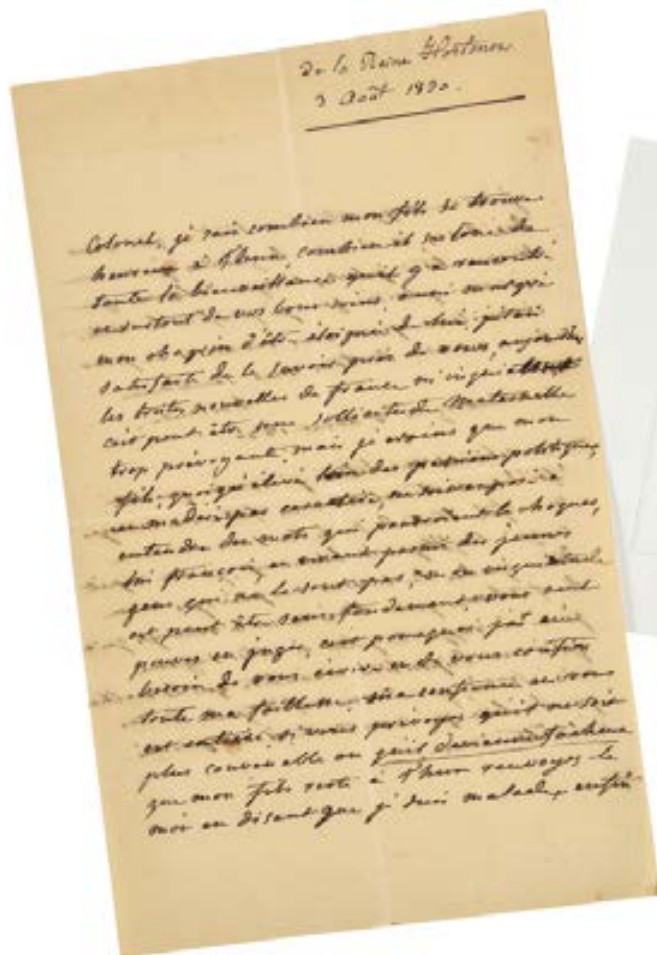 de la Reine Hortense
3 Août 1830.
Colonel, je sais combien mon fils se trouve
heureux à Thun combien il est
toute la bienveillance qu'il y a rencontré
et surtout de vos bons soins aussi malgré
mon chagrin d'être éloignée de lui j'étais
satisfaite de le savoir près de vous, aujourd'hui
les tristes nouvelles de france
c'est peut être une sollicitude Maternelle
trop prévoyante mais je crains que mon
fils, quoiqu'élevé loin des passions politiques,
caractère, ne soit exposé à
entendre des mots qui pourroient le choquer,
lui françois, en vivant parmi des jeunes
gens qui ne le sont pas,
est peut être sans fondement, vous seul
pouvez en juger, c'est pourquoi j'ai eu
besoin de vous écrire et de vous confier
toute ma faiblesse. ma confiance en vous
est entière si vous prévoyez qu'il ne soit
plus convenable ou qu'il devienne fâcheux
que mon fils reste à Thun renvoyez le
moi en disant que je suis malade, enfin